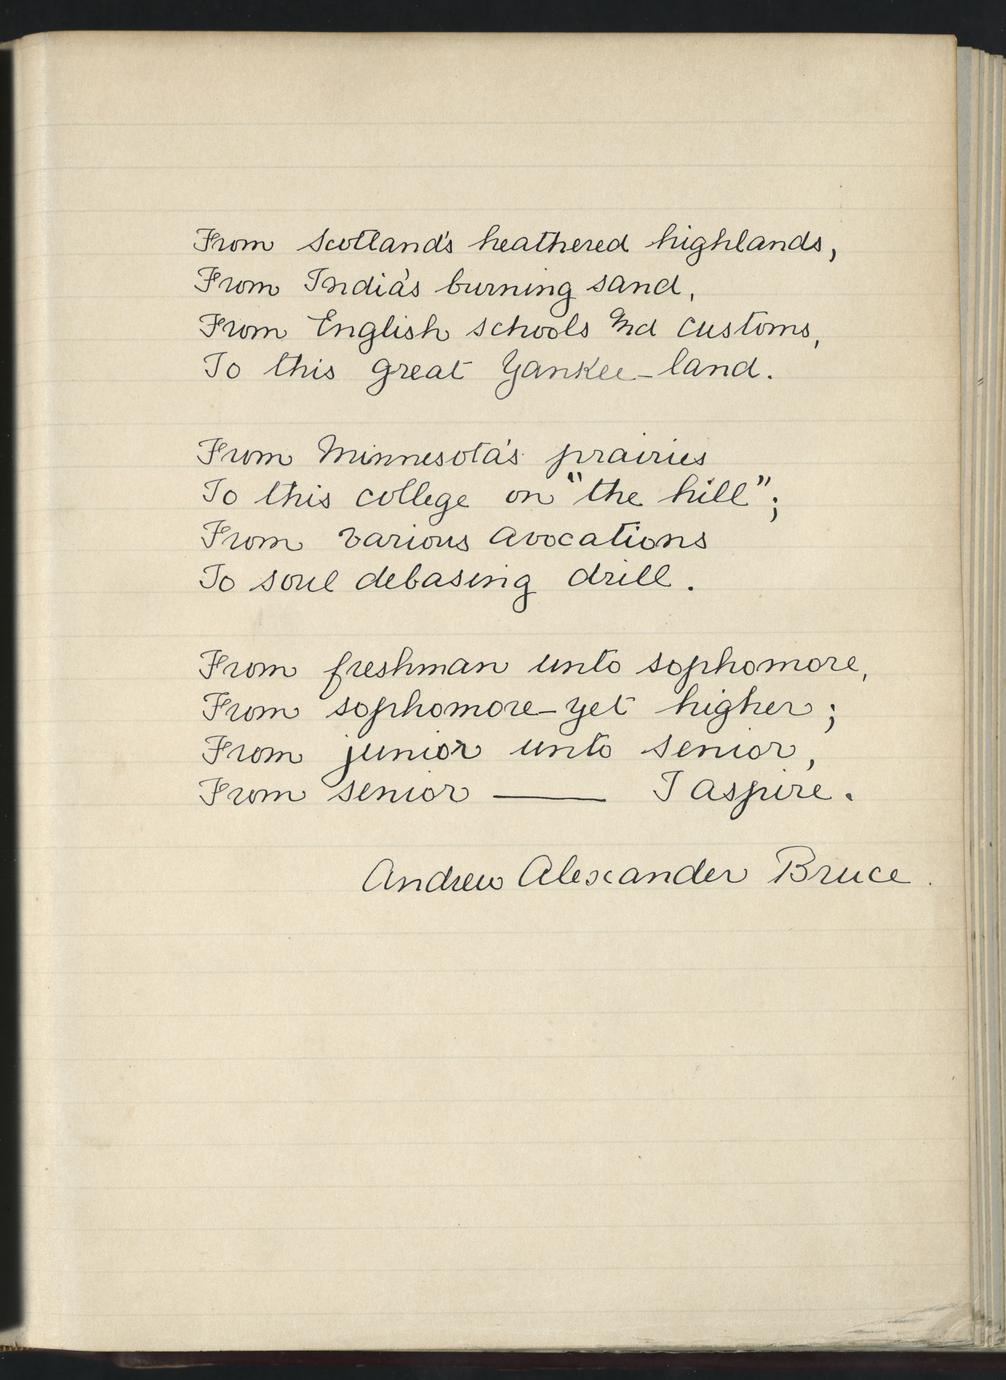 From Scotland's heathered highlands,
From India's burning sand,
From English schools and customs,
To this great Yankee-land.
From Minnesota's prairies
To this college on "the hill";
From various avocations
To soul debasing drill.
From freshman unto sophomore,
From sophomore-yet higher;
From junior unto senior,
From senior —— I aspire.
Andrew Alexander Bruce.